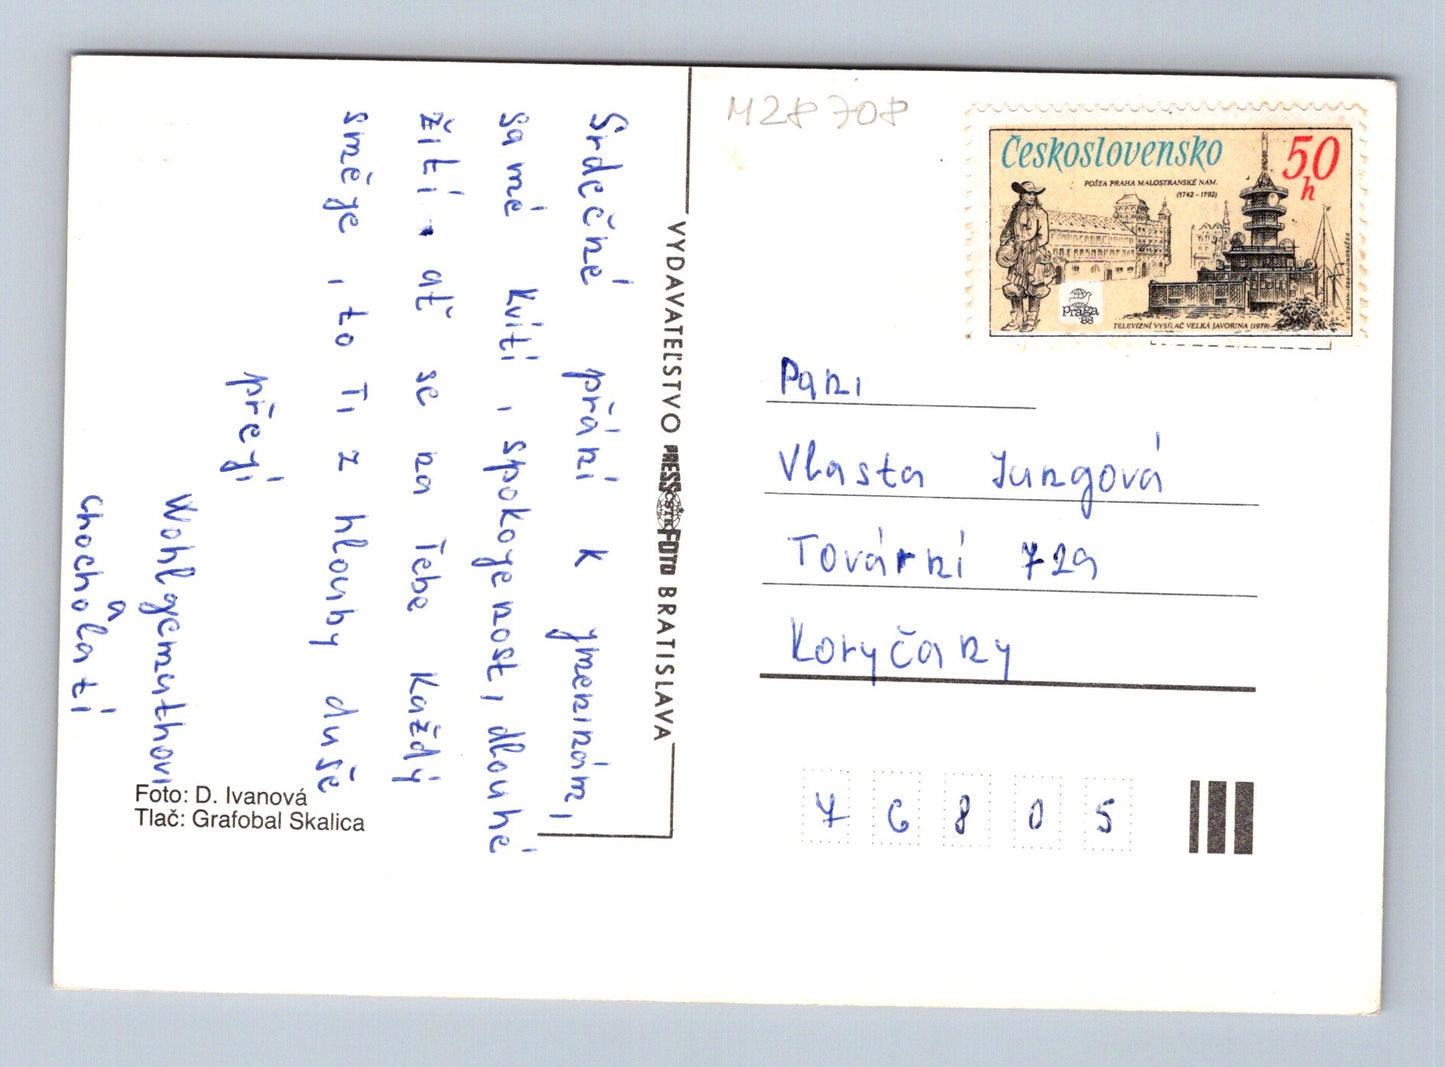 Srdečné přání k jmeninám,
samé kvítí, spokojenost, dlouhé
žití. ať se na Tebe každý
směje, to Ti z hlouby duše
přejí
Wohlgemuthovi
a
Chocholatí
Foto: D. Ivanová
Tlač: Grafobal Skalica
VYDAVATEĽSTVO PRESSFOTO BRATISLAVA
ČSTK
M28708
Československo
50
h
POŠTA PRAHA MALOSTRANSKÉ NÁM.
(1742–1792)
praga
88
TELEVIZNÍ VYSÍLAČ VELKÁ JAVORINA (1979)
Paní
Vlasta Jungová
Tovární 729
Koryčany
76805